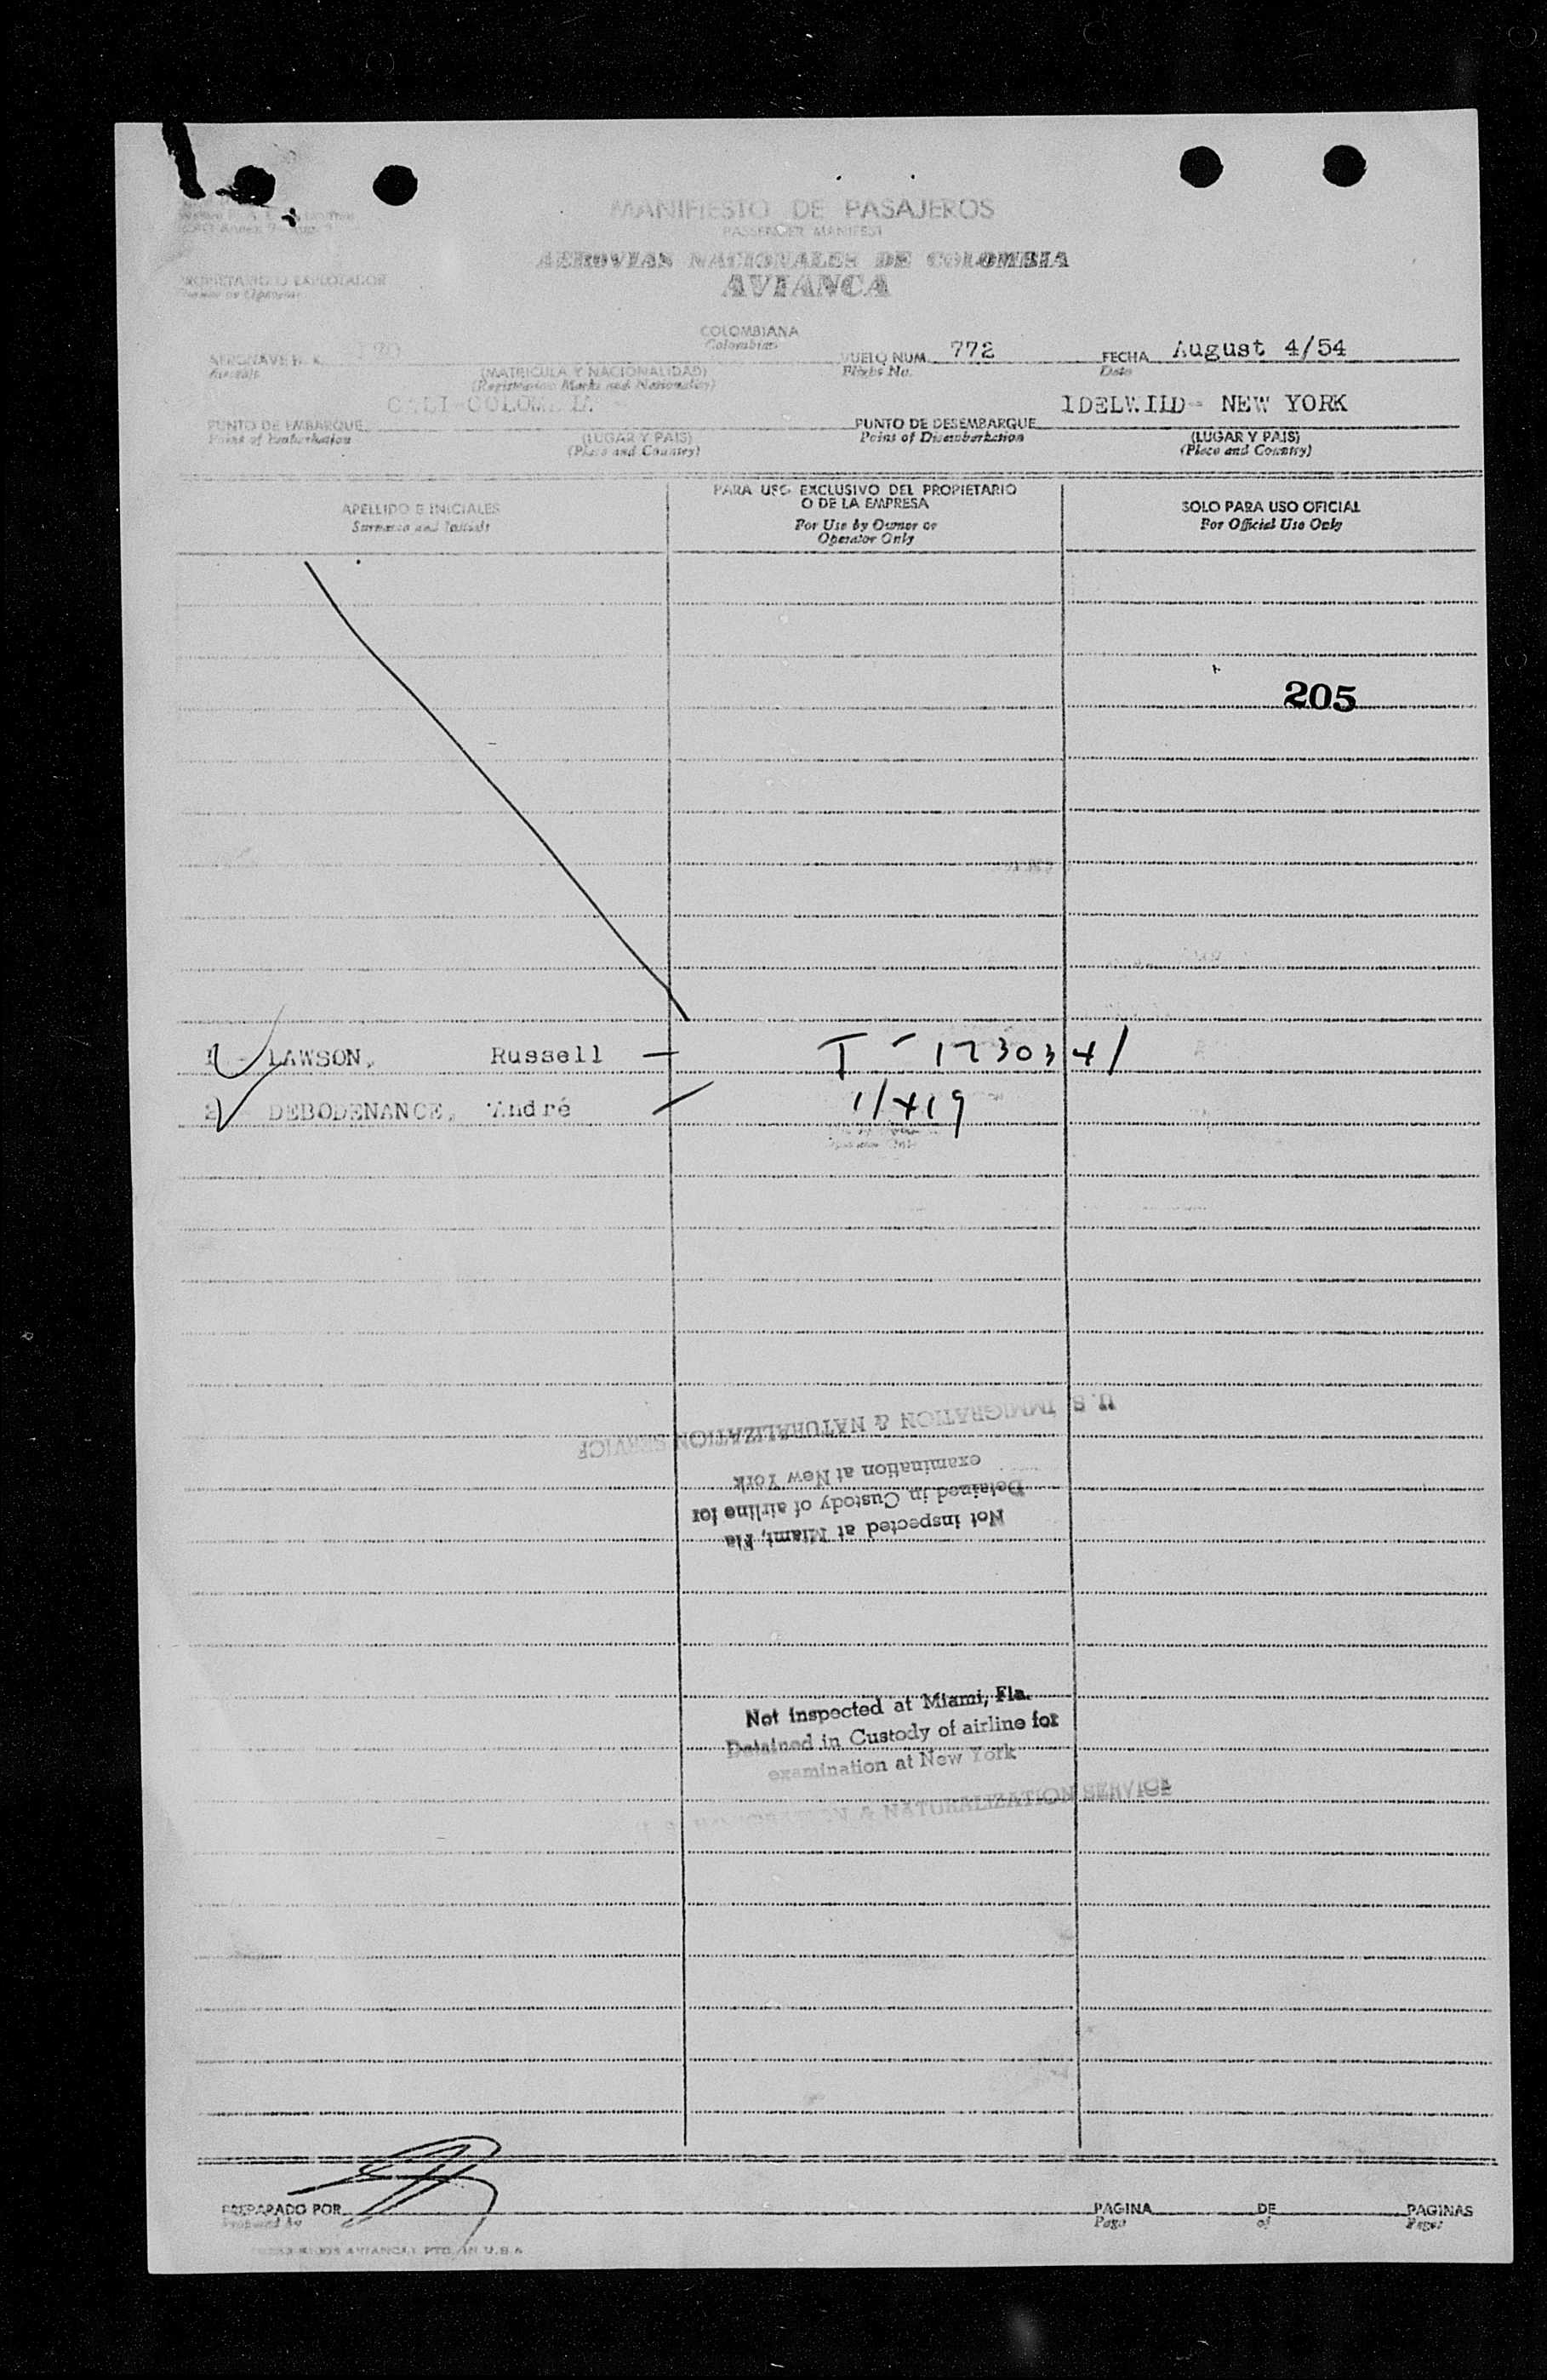 MANIFIESTO DE PASAJEROS
PASSENGER MANIFEST
AEROVIAS NACIONALES DE COLOMBIA
AVIANCA
PROPIETARIO O EXPLOTADOR
Owner or Operator
COLOMBIANA
Colombian
AERONAVE H. K. VUELO NUM. 772 FECHA August 4/54
Aircraft (MATRICULA Y NACIONALIDAD) Flight No. Date
(Registration Marks and Nationality)
CALI-COLOMBIA IDELWILD- NEW YORK
PUNTO DE EMBARQUE PUNTO DE DESEMBARQUE
Point of Embarkation (LUGAR Y PAIS) Point of Disembarkation (LUGAR Y PAIS)
(Place and Country) (Place and Country)
APELLIDO E INICIALES PARA USO EXCLUSIVO DEL PROPIETARIO SOLO PARA USO OFICIAL
Surname and Initials O DE LA EMPRESA For Official Use Only
For Use by Owner or
Operator Only
205
1 - LAWSON, Russell - I - 1230341
2 - DEBODENANCE, André - 11419
U. S. IMMIGRATION & NATURALIZATION SERVICE
Not inspected at Miami, Fla
Detained in Custody of airline for
examination at New York
Not inspected at Miami, Fla.
Detained in Custody of airline for
examination at New York
IMMIGRATION & NATURALIZATION SERVICE
PREPARADO POR PAGINA DE PAGINAS
Prepared by Page of Pages
AVIANCA) PTD. IN U.S.A